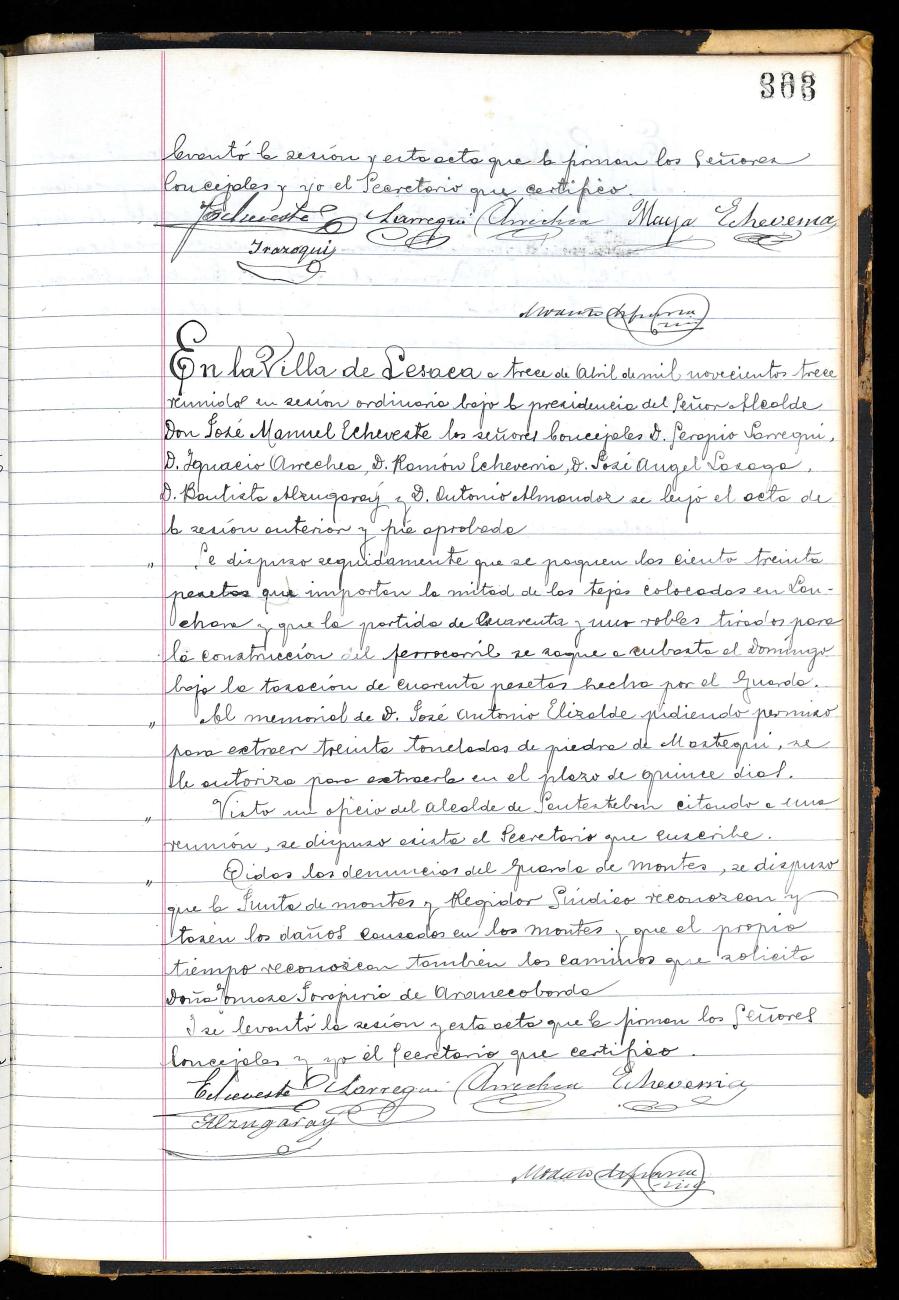 303
levantó la sesión y esta acta que la firman los Señores
Concejales y yo el Secretario que certifico.
Echeveste Larregui Arrechea Maya Echeverria
Irazoqui
Modesto
En la Villa de Lesaca a trece de Abril de mil novecientos trece
reunidos en sesión ordinaria bajo la presidencia del Señor Alcalde
Don José Manuel Echeveste los señores Concejales D. Serapio Larregui,
D. Ignacio Arrechea, D. Ramón Echeverria, D. José Angel Lasaga,
D. Bautista Alzugaray y D. Antonio Almandoz se leyó el acta de
la sesión anterior y fué aprobada
" Se dispuso seguidamente que se paguen las ciento treinta
pesetas que importan la mitad de las tejas colocadas en Lan-
chara y que la partida de Cuarenta y uno robles tirados para
la construcción del ferrocarril se saque a subasta el Domingo
bajo la tasación de cuarenta pesetas hecha por el Guarda.
" Al memorial de D. José Antonio Elizalde pidiendo permiso
para extraer treinta toneladas de piedra de Mastegui, se
le autoriza para extraerla en el plazo de quince dias.
" Visto un oficio del Alcalde de Santesteban citando a una
reunión, se dispuso asista el Secretario que suscribe.
" Oidas las denuncias del Guarda de montes, se dispuso
que la Junta de montes y Regidor Síndico reconozcan y
tasen los daños causados en los montes y que al propio
tiempo reconozcan también los caminos que solicita
Doña Tomasa de Aranecoborda
Y se levantó la sesión y esta acta que la firman los Señores
Concejales y yo el Secretario que certifico.
Echeveste Larregui Arrechea Echeverria
Alzugaray
Modesto